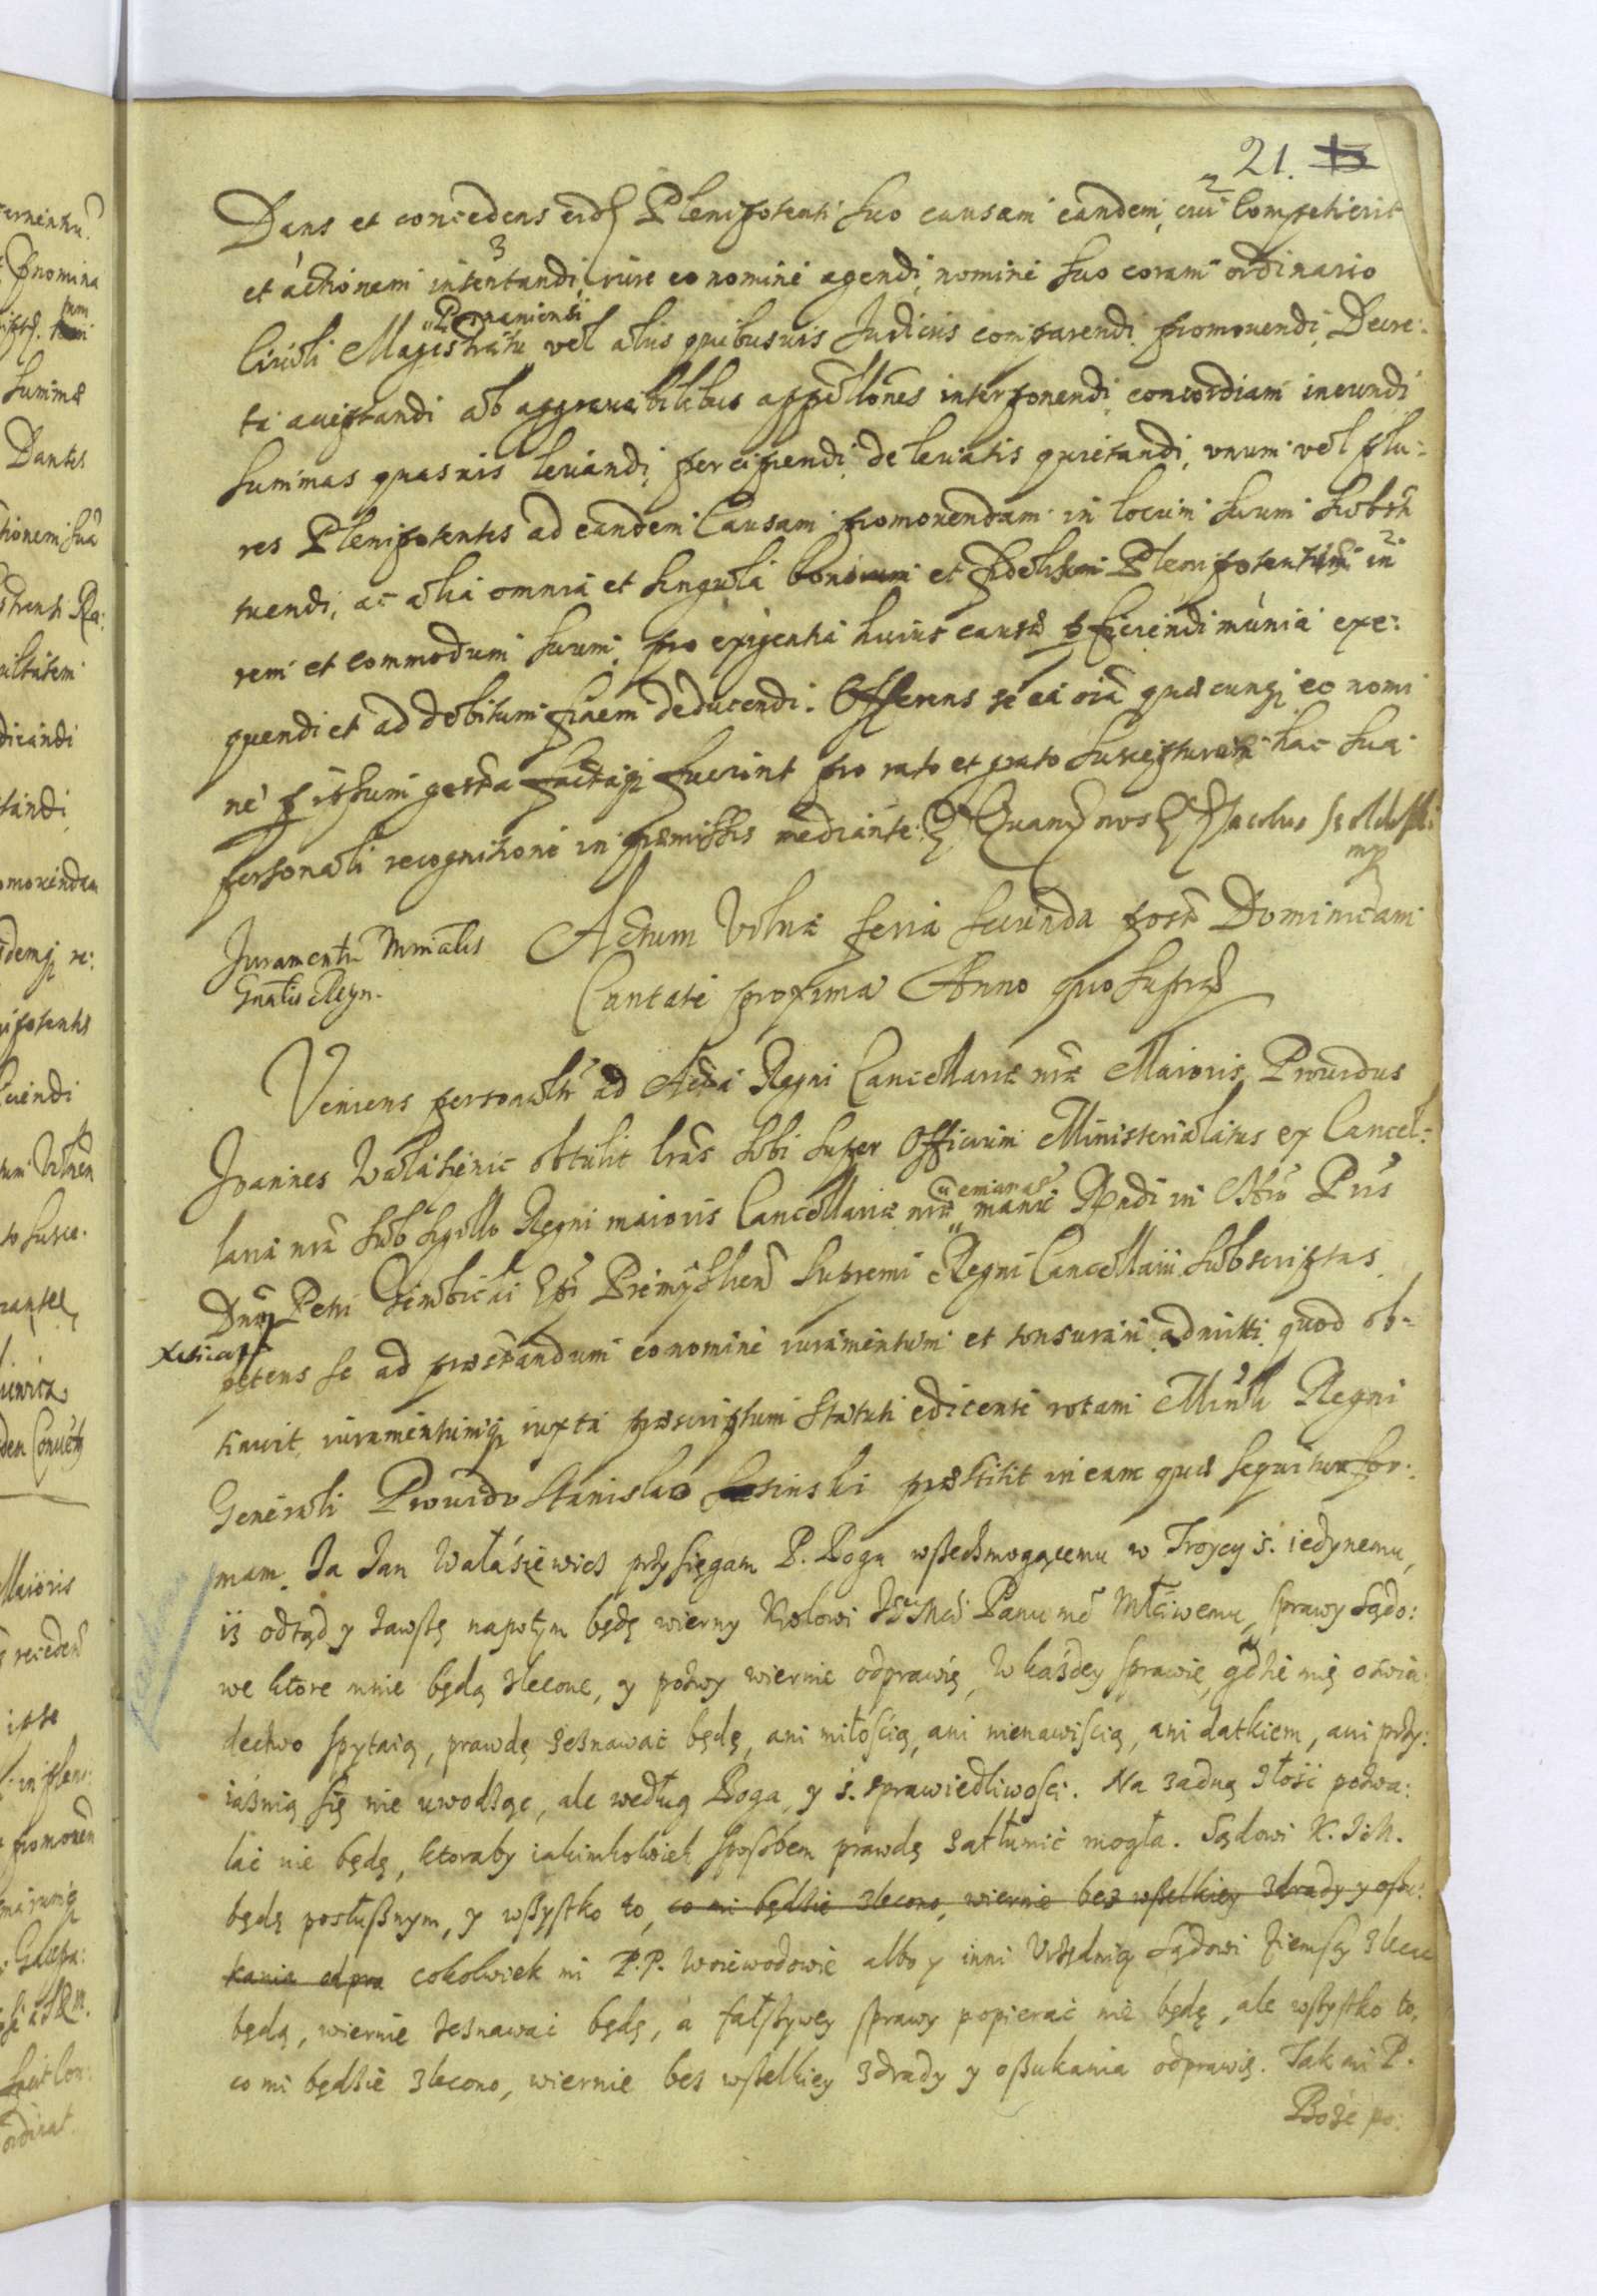 21.
Dans et concedens eidē Plenipotenti suo causam eandem, cui competierit
et actionem intentandi, iure eo nomine agendi, nomine suo coram ordinario
Civili Magistratu Posnaniensi vel aliis quibusvis Judiciis comparendi, promovendi, Decre:
ta acceptandi ab aggravabilibus appellōnes interponendi, concordiam ineundi
summas quasvis levandi, percipiendi, de levatis quietandi, unum vel plu:
res Plenipotentes ad eandem Causam promovendam in locum suum substi
tuendi, ac alia omnia et singula bonorum et fidelium Plenipotentium in
rem et commodum suum, pro exigentia huius causæ perficiendi munia exe:
quendi et ad debitum finem deducendi. Offerens se ea oīa quæcunqȝ eo nomi
ne per ipsum gesta factaqȝ fuerint pro rato et grato suscepturum hac sua
personali recognitione in præmissis mediante. Quam nos Jacobus
mp
Juramentū Mnialis
Gnalis Regn.
Actum Vilnæ feria secunda post Dominicam
Cantate proxima Anno quo supra
Veniens personaltr ad Acta Regni Cancellariæ nrǣ Maioris, Providus
Joannes Walasievic obtulit lrās sibi super Officium Ministerialatus ex Cancel:
laria nrā sub sigillo Regni maioris Cancellariæ nrǣ emanas manu Rndi in Chrō Pris
Dnī Petri Gembicki Epī Premyslien Supremi Regni Cancellarii subscriptas
petens se ad præstandum eo nomine iuramentum et tonsuram admitti, quod ob-
tinuit, iuramentumqȝ iuxta præscriptum Statuti edicente rotam Mīnli Regni
Generali Provido Stanislao Sosinski præstitit in eam quæ sequitur for:
mam. Ja Jan Wałásiewicz przysięgam P. Bogu wszechmogącemu w Troycy ś. iedynemu,
iż odtąd y zawszę napotym będę wierny Krolowi JeMci Panu mē Młciwemu, sprawy sądo:
we ktore mnie będą zlecone, y pozwy wiernie odprawię, w każdey sprawie, gdzie mię o świa
dectwo spytaią, prawdę zeznawać będę, ani miłością, ani nienawiścią, ani datkiem, ani przy:
iaźnią się nie uwodząc, ale według Boga, y ś. sprawiedliwości. Na żadną złość pozwa:
lać nie będę, ktoraby iakimkolwiek sposobem prawdę zatłumić mogła. Sądowi K. JeM.
będę posłusznym, y wszystko to, co mi będzie zlecono, wiernie bez wszelkiey zdrady y oszu:
kania odpra cokolwiek mi P.P. Woiewodowie albo y inni Urzędnicy Sądowi Ziemscy zlecać
będą, wiernie zeznawać będę, á fałszywey sprawy popierać nie będę, ale wszystko to,
co mi będzie zlecono, wiernie bez wszelkiey zdrady y oszukania odprawię. Tak mi P.
Boże po: